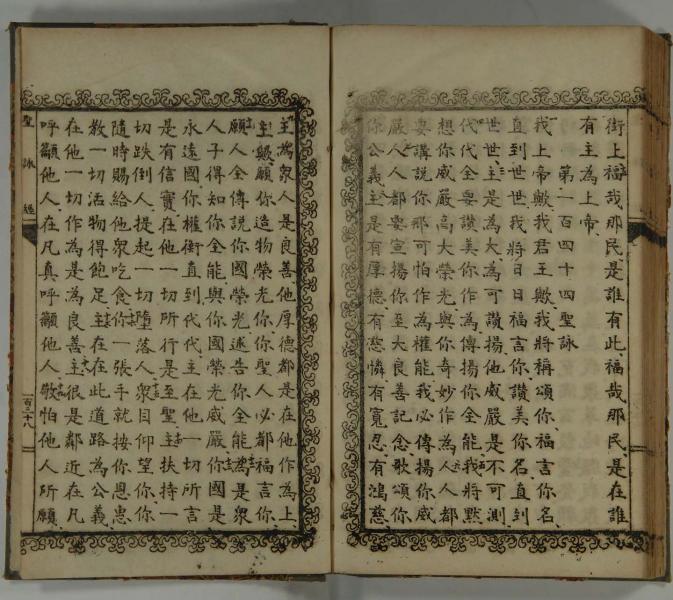 街上福哉那民是誰有此福哉那民是在誰
有主為上帝
第一百四十四聖詠
我上帝歟我君王歟我將稱頌你福言你名
直到世世我將日日福言你讚美你名直到
世世主是為大為可讚揚他威嚴是不可測
代代全要讚美你作為傳揚你全能我將默
想你威嚴高大榮光與你奇妙作為人人都
要講說你那可怕作為權能我必傳揚你威
嚴人人都要宣揚你至大良善記念歌頌你
你公義主是有厚德有慈憐有寬忍有鴻慈
主為衆人是良善他厚德都是在他作為上
主歟願你造物榮光你你聖人必都福言你
願人全傳說你國榮光述告你全能為是衆
人子得知你全能與你國榮光威嚴你國是
永遠國你權衡直到代代主在他一切所言
是有信實在他一切所行是至聖主扶持一
切跌倒人提起一切墮落人衆目仰望你你
隨時賜給他衆吃食你一張手就按你恩惠
教一切活物得飽足主在在此道路為公義
在他一切作為是為良善主很是鄰近在凡
呼籲他人在凡真呼籲他人敬怕他人所願
聖詠經
百三十八